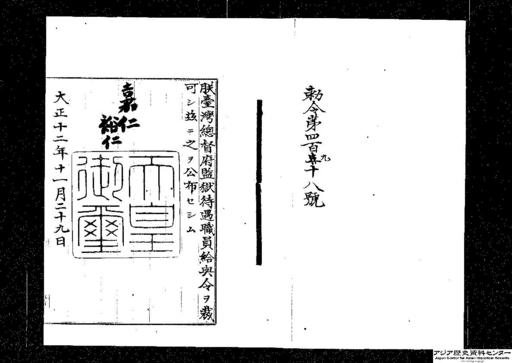 勅令第四百九十八號
朕臺灣總督府監獄待遇職員給與令ヲ裁
可シ茲ニ之ヲ公布セシム
嘉仁
裕仁
天皇
御璽
大正十二年十一月二十九日
アジア歴史資料センター
Japan Center for Asian Historical Records